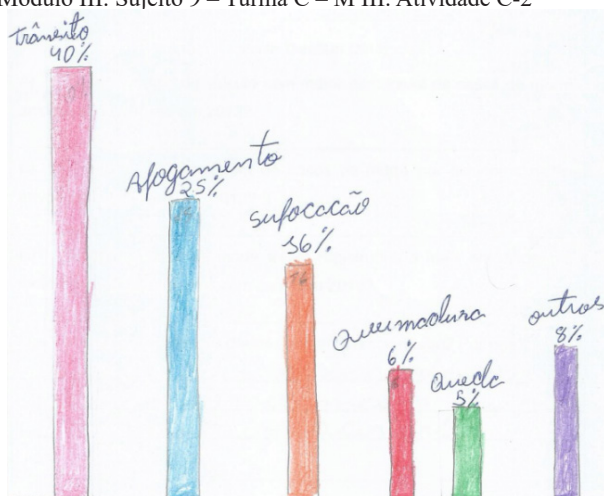 Módulo III. Sujeito 9 – Turma C – M III. Atividade C-2
trânsito
40%
Afogamento
25%
sufocacão
16%
queimadura
6%
queda
5%
outros
8%